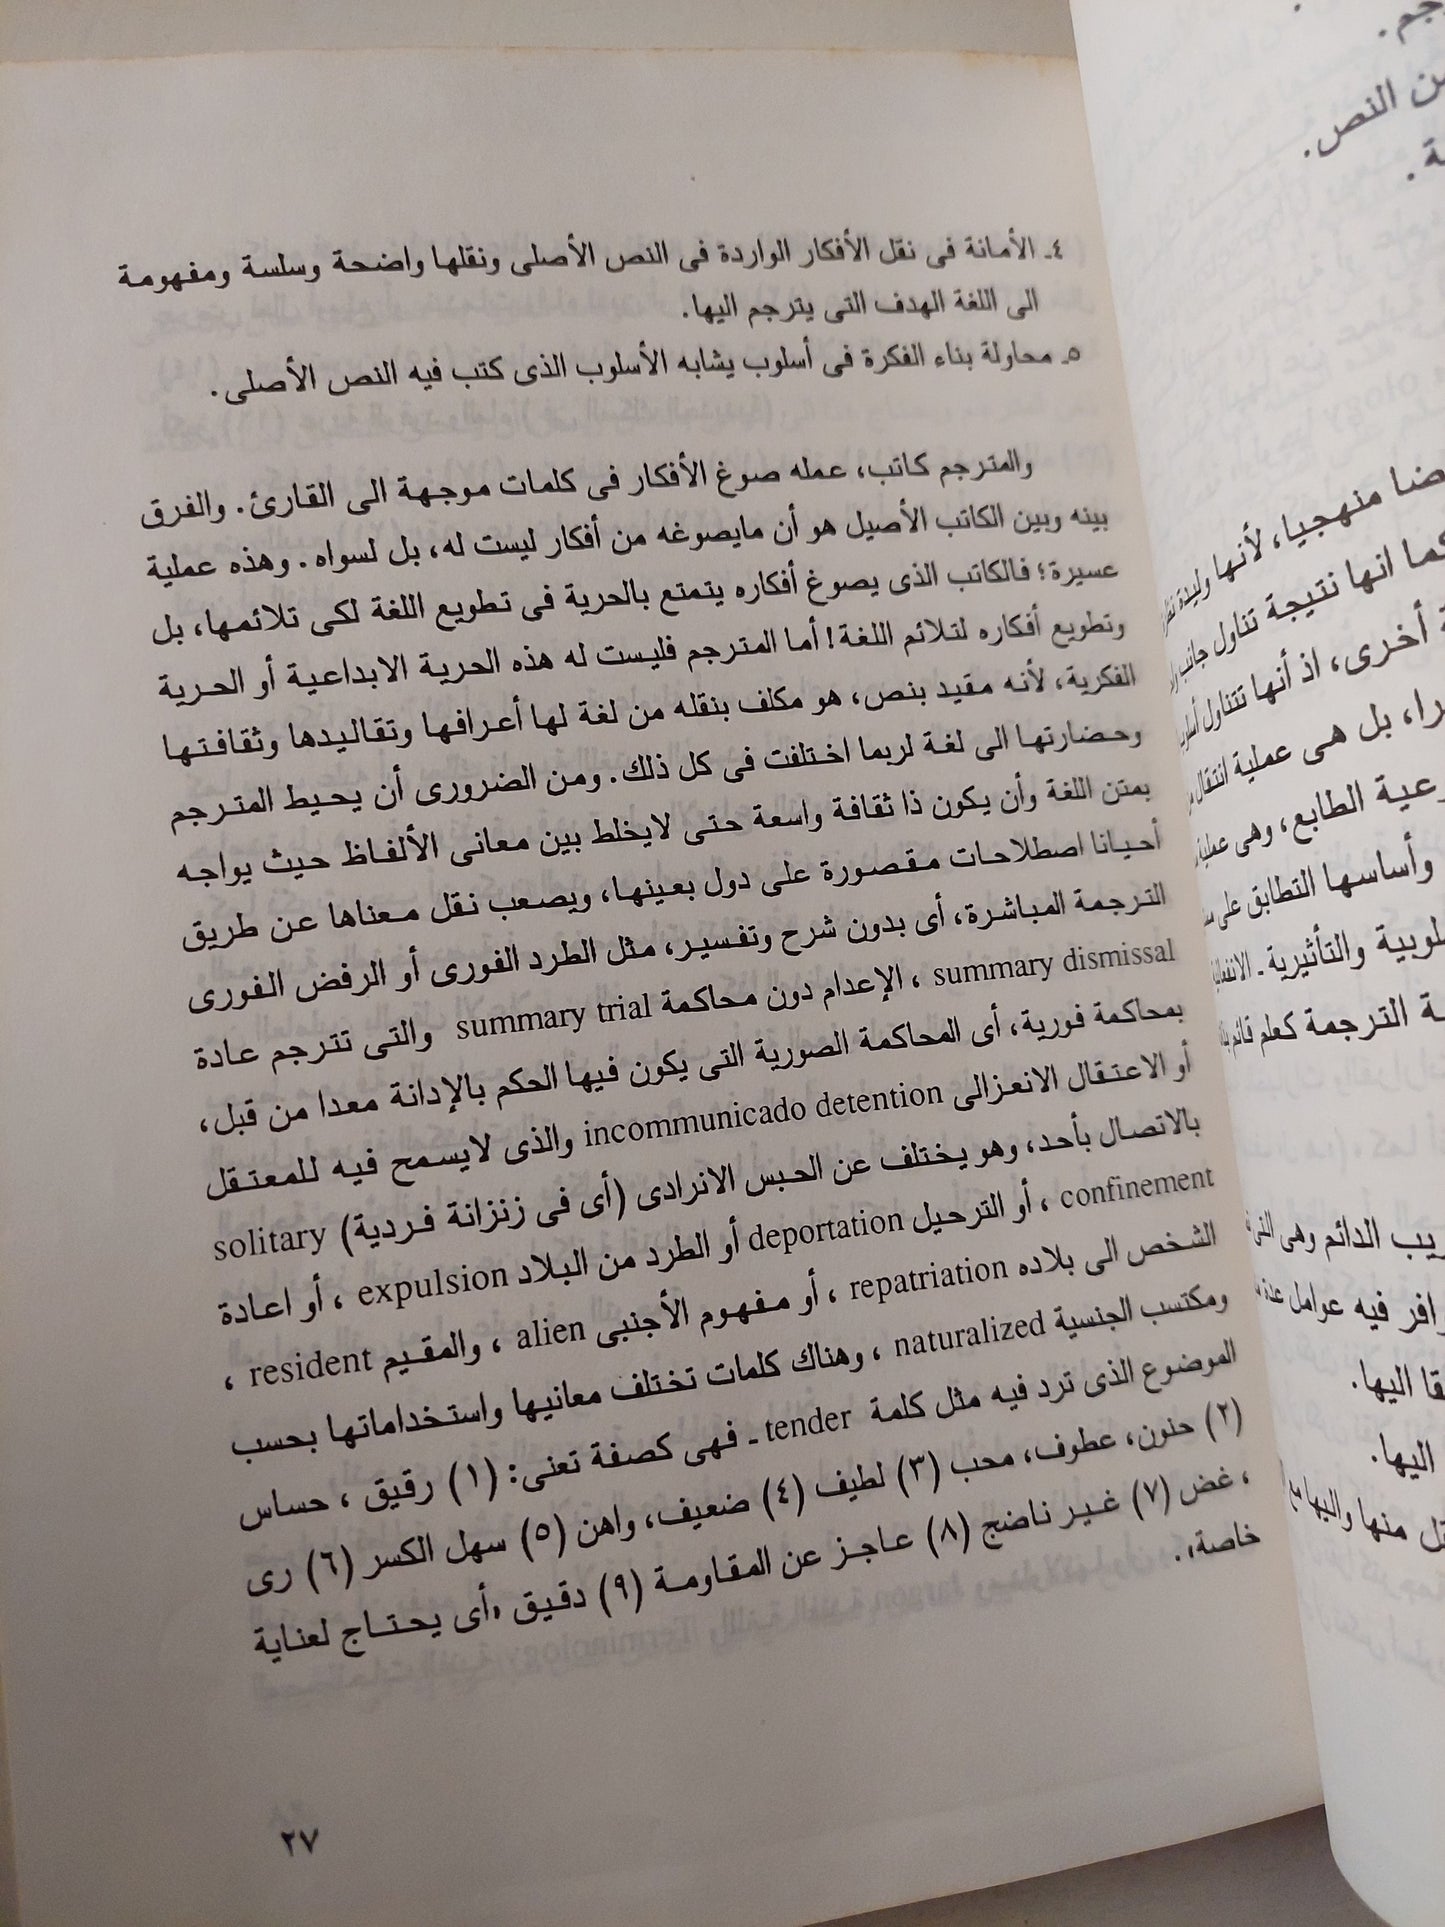 ٤ـ الأمانة فى نقل الأفكار الواردة فى النص الأصلى ونقلها واضحة وسلسة ومفهومة
الى اللغة الهدف التى يترجم اليها.
٥ـ محاولة بناء الفكرة فى أسلوب يشابه الأسلوب الذى كتب فيه النص الأصلى.
والمترجم كاتب، عمله صوغ الأفكار فى كلمات موجهة الى القارئ. والفرق
بينه وبين الكاتب الأصيل هو أن مايصوغه من أفكار ليست له، بل لسواه. وهذه عملية
عسيرة؛ فالكاتب الذى يصوغ أفكاره يتمتع بالحرية فى تطويع اللغة لكى تلائمها، بل
وتطويع أفكاره لتلائم اللغة! أما المترجم فليست له هذه الحرية الابداعية أو الحرية
الفكرية، لأنه مقيد بنص، هو مكلف بنقله من لغة لها أعرافها وتقاليدها وثقافتها
وحضارتها الى لغة لربما اختلفت فى كل ذلك. ومن الضرورى أن يحيط المترجم
بمتن اللغة وأن يكون ذا ثقافة واسعة حتى لايخلط بين معانى الألفاظ حيث يواجه
أحيانا اصطلاحات مقصورة على دول بعينها، ويصعب نقل معناها عن طريق
الترجمة المباشرة، أى بدون شرح وتفسير، مثل الطرد الفورى أو الرفض الفورى
summary dismissal ، الإعدام دون محاكمة summary trial والتى تترجم عادة
بمحاكمة فورية، أى المحاكمة الصورية التى يكون فيها الحكم بالإدانة معدا من قبل،
أو الاعتقال الانعزالى incommunicado detention والذى لايسمح فيه للمعتقل
بالاتصال بأحد، وهو يختلف عن الحبس الانرادى (أى فى زنزانة فردية) solitary
confinement ، أو الترحيل deportation أو الطرد من البلاد expulsion ، أو اعادة
الشخص الى بلاده repatriation ، أو مفهوم الأجنبى alien ، والمقيم resident ،
ومكتسب الجنسية naturalized ، وهناك كلمات تختلف معانيها واستخداماتها بحسب
الموضوع الذى ترد فيه مثل كلمة tender ـ فهى كصفة تعنى: (١) رقيق ، حساس
(٢) حنون، عطوف، محب (٣) لطيف (٤) ضعيف، واهن (٥) سهل الكسر (٦) رى
، غض (٧) غير ناضج (٨) عاجز عن المقاومة (٩) دقيق «أى يحتاج لعناية
خاصة».
٢٧
من النص.
منهجيا، لأنها وليدة
كما انها نتيجة تناول جانب
أخرى، اذ أنها تتناول
بل هى عملية انتقال
الطابع، وهى عملية
وأساسها التطابق على
والتأثيرية ـ
الترجمة كعلم قائم
الدائم وهى
فيه عوامل عدة
اليها.
اليها.
منها واليها مع